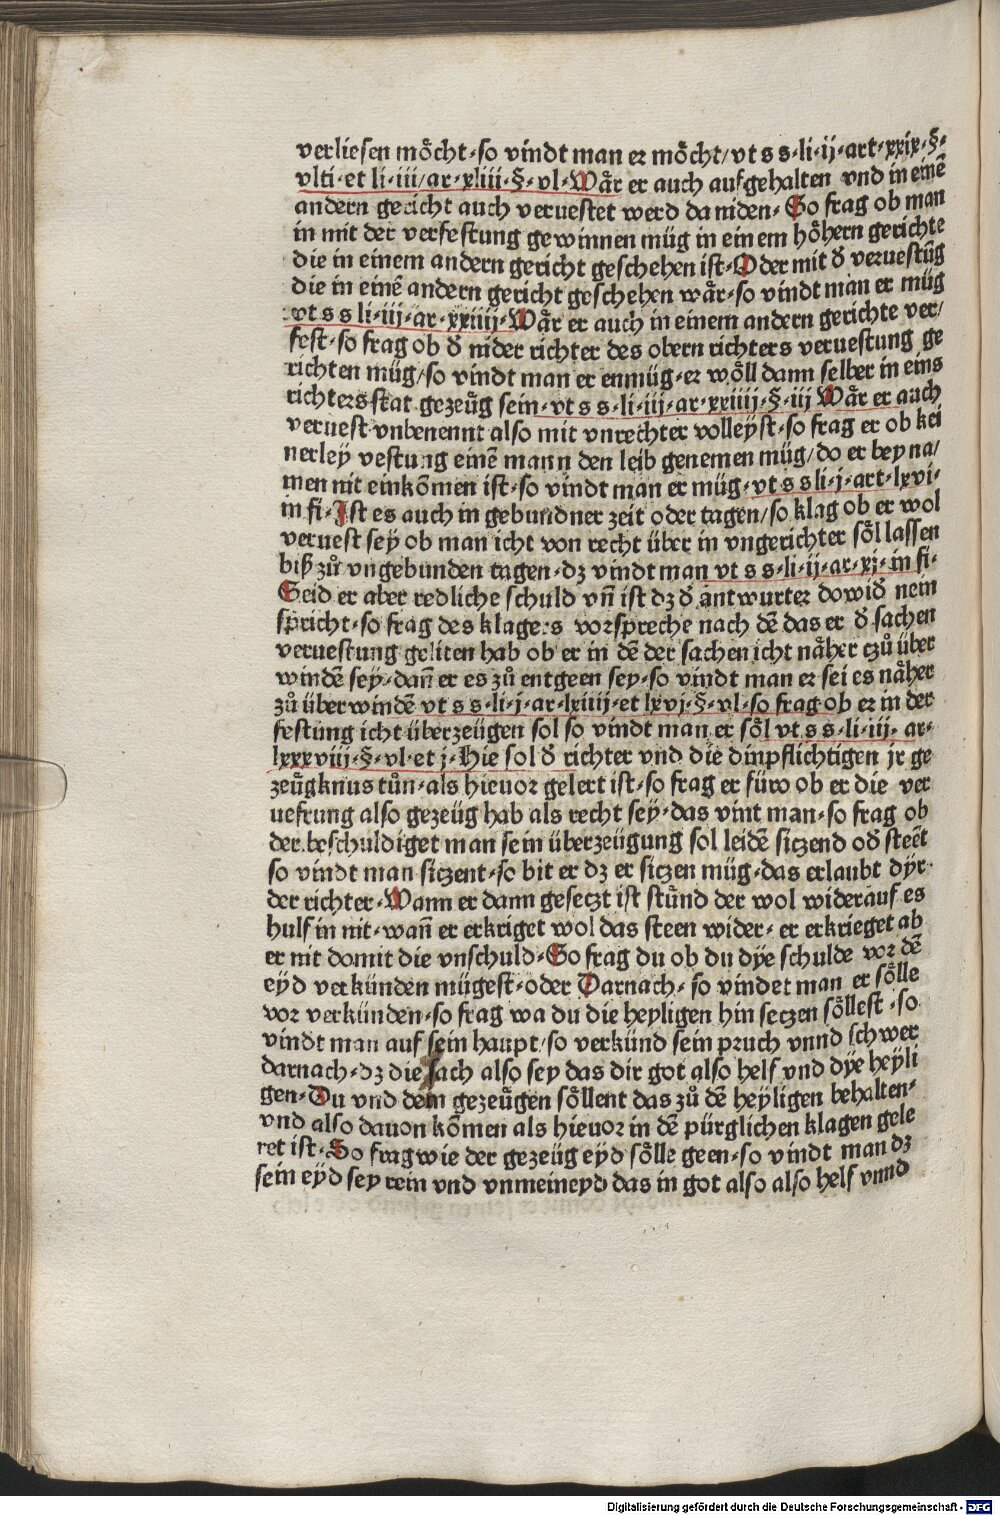 verliesen mo᷏cht·so vindt man er mo᷏cht/vt s s·li·ij·art·xxix·§·
vlti·et li·iii/ar·xliii·§·vl·Wa᷏r er auch aufgehalten vnd in einē
andern gericht auch veruestet werd da niden·So frag ob man
in mit der verfestung gewinnen müg in einem ho᷏hern gerichte
die in einem andern gericht geschehen ist·Oder mit đ veruestūg
die in einē andern gericht geschehen wa᷏r·so vindt man er müg
vt s s li·iij·ar·xxiiij·Wa᷏r er auch in einem andern gerichte ver/
fest·so frag ob đ nider richter des obern richters veruestung ge
richten müg/so vindt man er enmüg·er wo᷏ll dann selber in eins
richters stat gezeüg sein·vt s s·li·iij·ar·xxiiii·§·iij Wa᷏r er auch
veruest vnbenennt also mit vnrechter volleyst·so frag er ob kei
nerley vestung einē mann den leib genemen müg/do er bey na/
men nit einkōmen ist·so vindt man er müg·vt s s li·j·art·lxvi·
in fi·Ist es auch in gebundner zeit oder tagen/so klag ob er wol
veruest sey ob man icht von recht über in vngerichter so᷏l lassen
biß zů vngebunden tagen·dz vindt man vt s s·li·ij·ar·xj·in fi·
Seid er aber redliche schuld vn̄ ist dz đ antwurter dowiđ nein
spricht·so frag des klagers vorspreche nach dē das er đ sachen
veruestung geliten hab ob er in dē der sachen icht na᷏her czů über
windē sey·dan̄ er es zů entgeen sey·so vindt man er sei es na᷏her
zů überwindē vt s s·li·j·ar·lxiiij·et lxvj·§·vl·so frag ob er in der
festung icht überzeügen sol so vindt man er so᷏l vt s s·li·iij·ar·
lxxxviij·§·vl·et j·Hie sol đ richter vnd die dinpflichtigen jr ge
zeügknus tůn·als hieuor gelert ist·so frag er füro ob er die ver
uestung also gezeüg hab als recht sey·das vint man·so frag ob
der beschuldiget man sein überzeügung sol leidē siczend ođ steēt
so vindt man siczent·so bit er dz er siczen müg·das erlaubt dyr
der richter·Wann er dann geseczt ist stünd der wol widerauf es
hulf in nit·wan̄ er erkriget wol das steen wider·er erkrieget ab
er nit domit die vnschuld·So frag du ob du dye schulde vor dē
eyd verkünden mügest·oder Darnach·so vindet man er so᷏lle
vor verkünden·so frag wa du die heyligen hin seczen so᷏llest·so
vindt man auf sein haupt/so verkünd sein pruch vnnd schwer
darnach·dz die sach also sey das dir got also helf vnd dye heyli
gen·Du vnd dein gezeügen so᷏llent das zů dē heyligen behalten·
vnd also dauon kōmen als hieuor in dē pürglichen klagen gele
ret ist·So frag wie der gezeüg eyd so᷏lle geen·so vindt man dz
sein eyd sey rein vnd vnmeineyd das in got also also helf vnnd
Digitalisierung gefördert durch die Deutsche Forschungsgemeinschaft - DFG